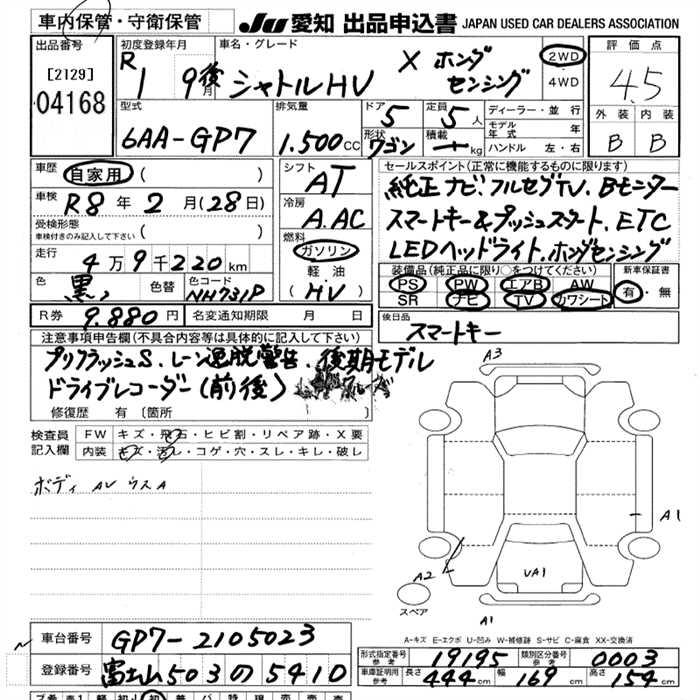 車内保管・守衛保管
JU 愛知 出品申込書 JAPAN USED CAR DEALERS ASSOCIATION
出品番号
[2129]
04168
初度登録年月
R1 9月 後
車名・グレード
シャトルHV X ホンダセンシング
2WD
4WD
評価点
4.5
外装 内装
B B
型式
6AA-GP7
排気量
1.500cc
ドア 5
形状 ワゴン
定員 5人
積載 ー kg
ディーラー・並行
モデル年式 年
ハンドル 左・右
車歴 自家用 ( )
車検 R8年 2月(28日)
受検形態
車検付きのみ記入して下さい ( )
走行 4万9千220km
色 黒 色替 色コード NH731P
R券 9.880円 名変通知期限 月 日
シフト AT
冷房 A.AC
燃料
ガソリン
軽油
(HV)
セールスポイント(正常に機能するものに限ります)
純正ナビ.フルセグTV.Bモニター
スマートキー&プッシュスタート.ETC
LEDヘッドライト.ホンダセンシング
装備品(純正品に限り○をつけてください) 新車保証書
PS PW エアB AW 有・無
SR ナビ TV カワシート
後日品
スマートキー
注意事項申告欄(不具合内容等は具体的に記入して下さい)
プリクラッシュS.レーン逸脱警告.後期モデル
ドライブレコーダー(前後)
修復歴 有 〔箇所 〕
検査員記入欄
FW キズ・飛石・ヒビ割・リペア跡・X要
内装 キズ・汚レ・コゲ・穴・スレ・キレ・破レ
ボディ AV ウスA
A3
A1
A2
UA1
スペア
A1
A-キズ E-エクボ U-凹み W-補修跡 S-サビ C-腐食 XX-交換済
車台番号 GP7-2105023
登録番号 富士山503の5410
形式指定番号 参考 19195 類別区分番号 参考 0003
車庫証明用 参考 長さ 444cm 幅 169cm 高さ 154cm